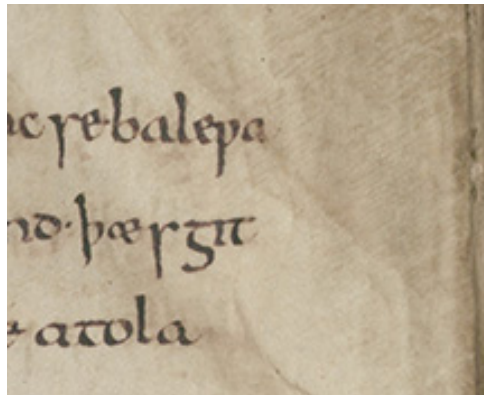 ac se baleƿa
nd· þæs git
e atola